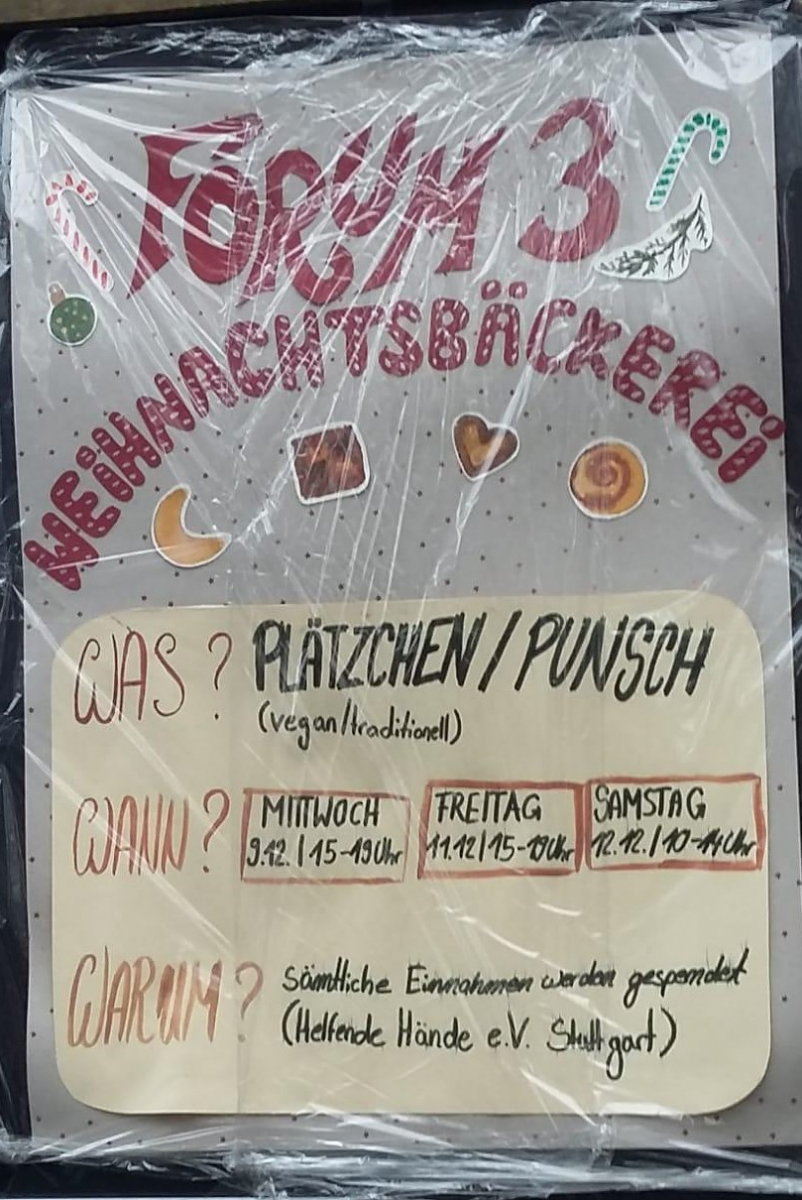 FORUM 3
WEIHNACHTSBÄCKEREI
WAS? PLÄTZCHEN / PUNSCH
(vegan/traditionell)
WANN? MITTWOCH
9.12. | 15-19 Uhr
FREITAG
11.12 | 15-19 Uhr
SAMSTAG
12.12. | 10-14 Uhr
WARUM? sämtliche Einnahmen werden gespendet
(Helfende Hände e.V. Stuttgart)